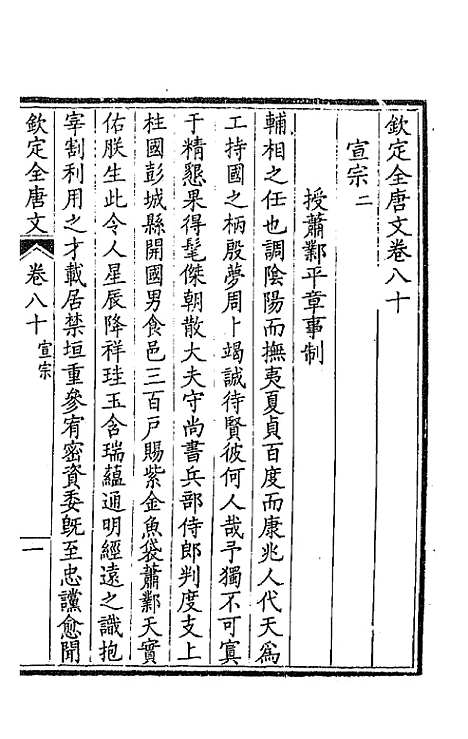 欽定全唐文卷八十
宣宗二
授蕭鄴平章事制
輔相之任也調陰陽而撫夷夏貞百度而康兆人代天爲
工持國之柄殷夢周卜竭誠待賢彼何人哉予獨不可寘
于精懇果得髦傑朝散大夫守尚書兵部侍郎判度支上
柱國彭城縣開國男食邑三百戶賜紫金魚袋蕭鄴天實
佑朕生此令人星辰降祥珪玉含瑞蘊通明經遠之識抱
宰割利用之才載居禁垣重參宥密資委旣至忠讜愈聞
欽定全唐文
卷八十
宣宗
一